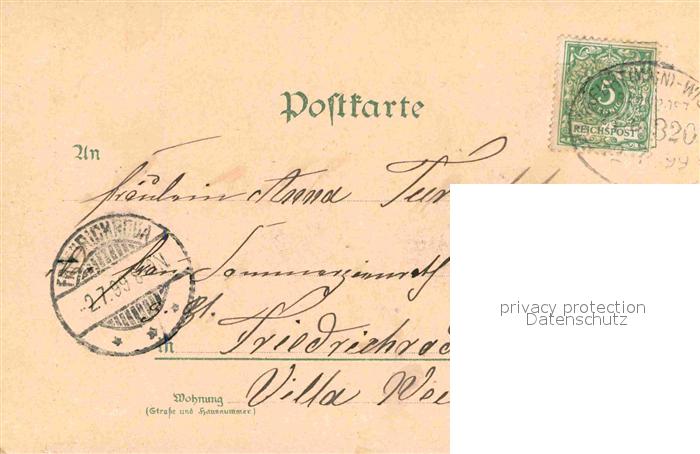 Postkarte
5
REICHSPOST
(MAIN)-W
820
99
An
Fräulein Anna Tur
FRIEDRICHRODA
2.7.99 8-9N.
Frau Commerzienrath
z. Zt.
in Friedrichrod
Wohnung
(Straße und Hausnummer)
Villa Wei
privacy protection
Datenschutz